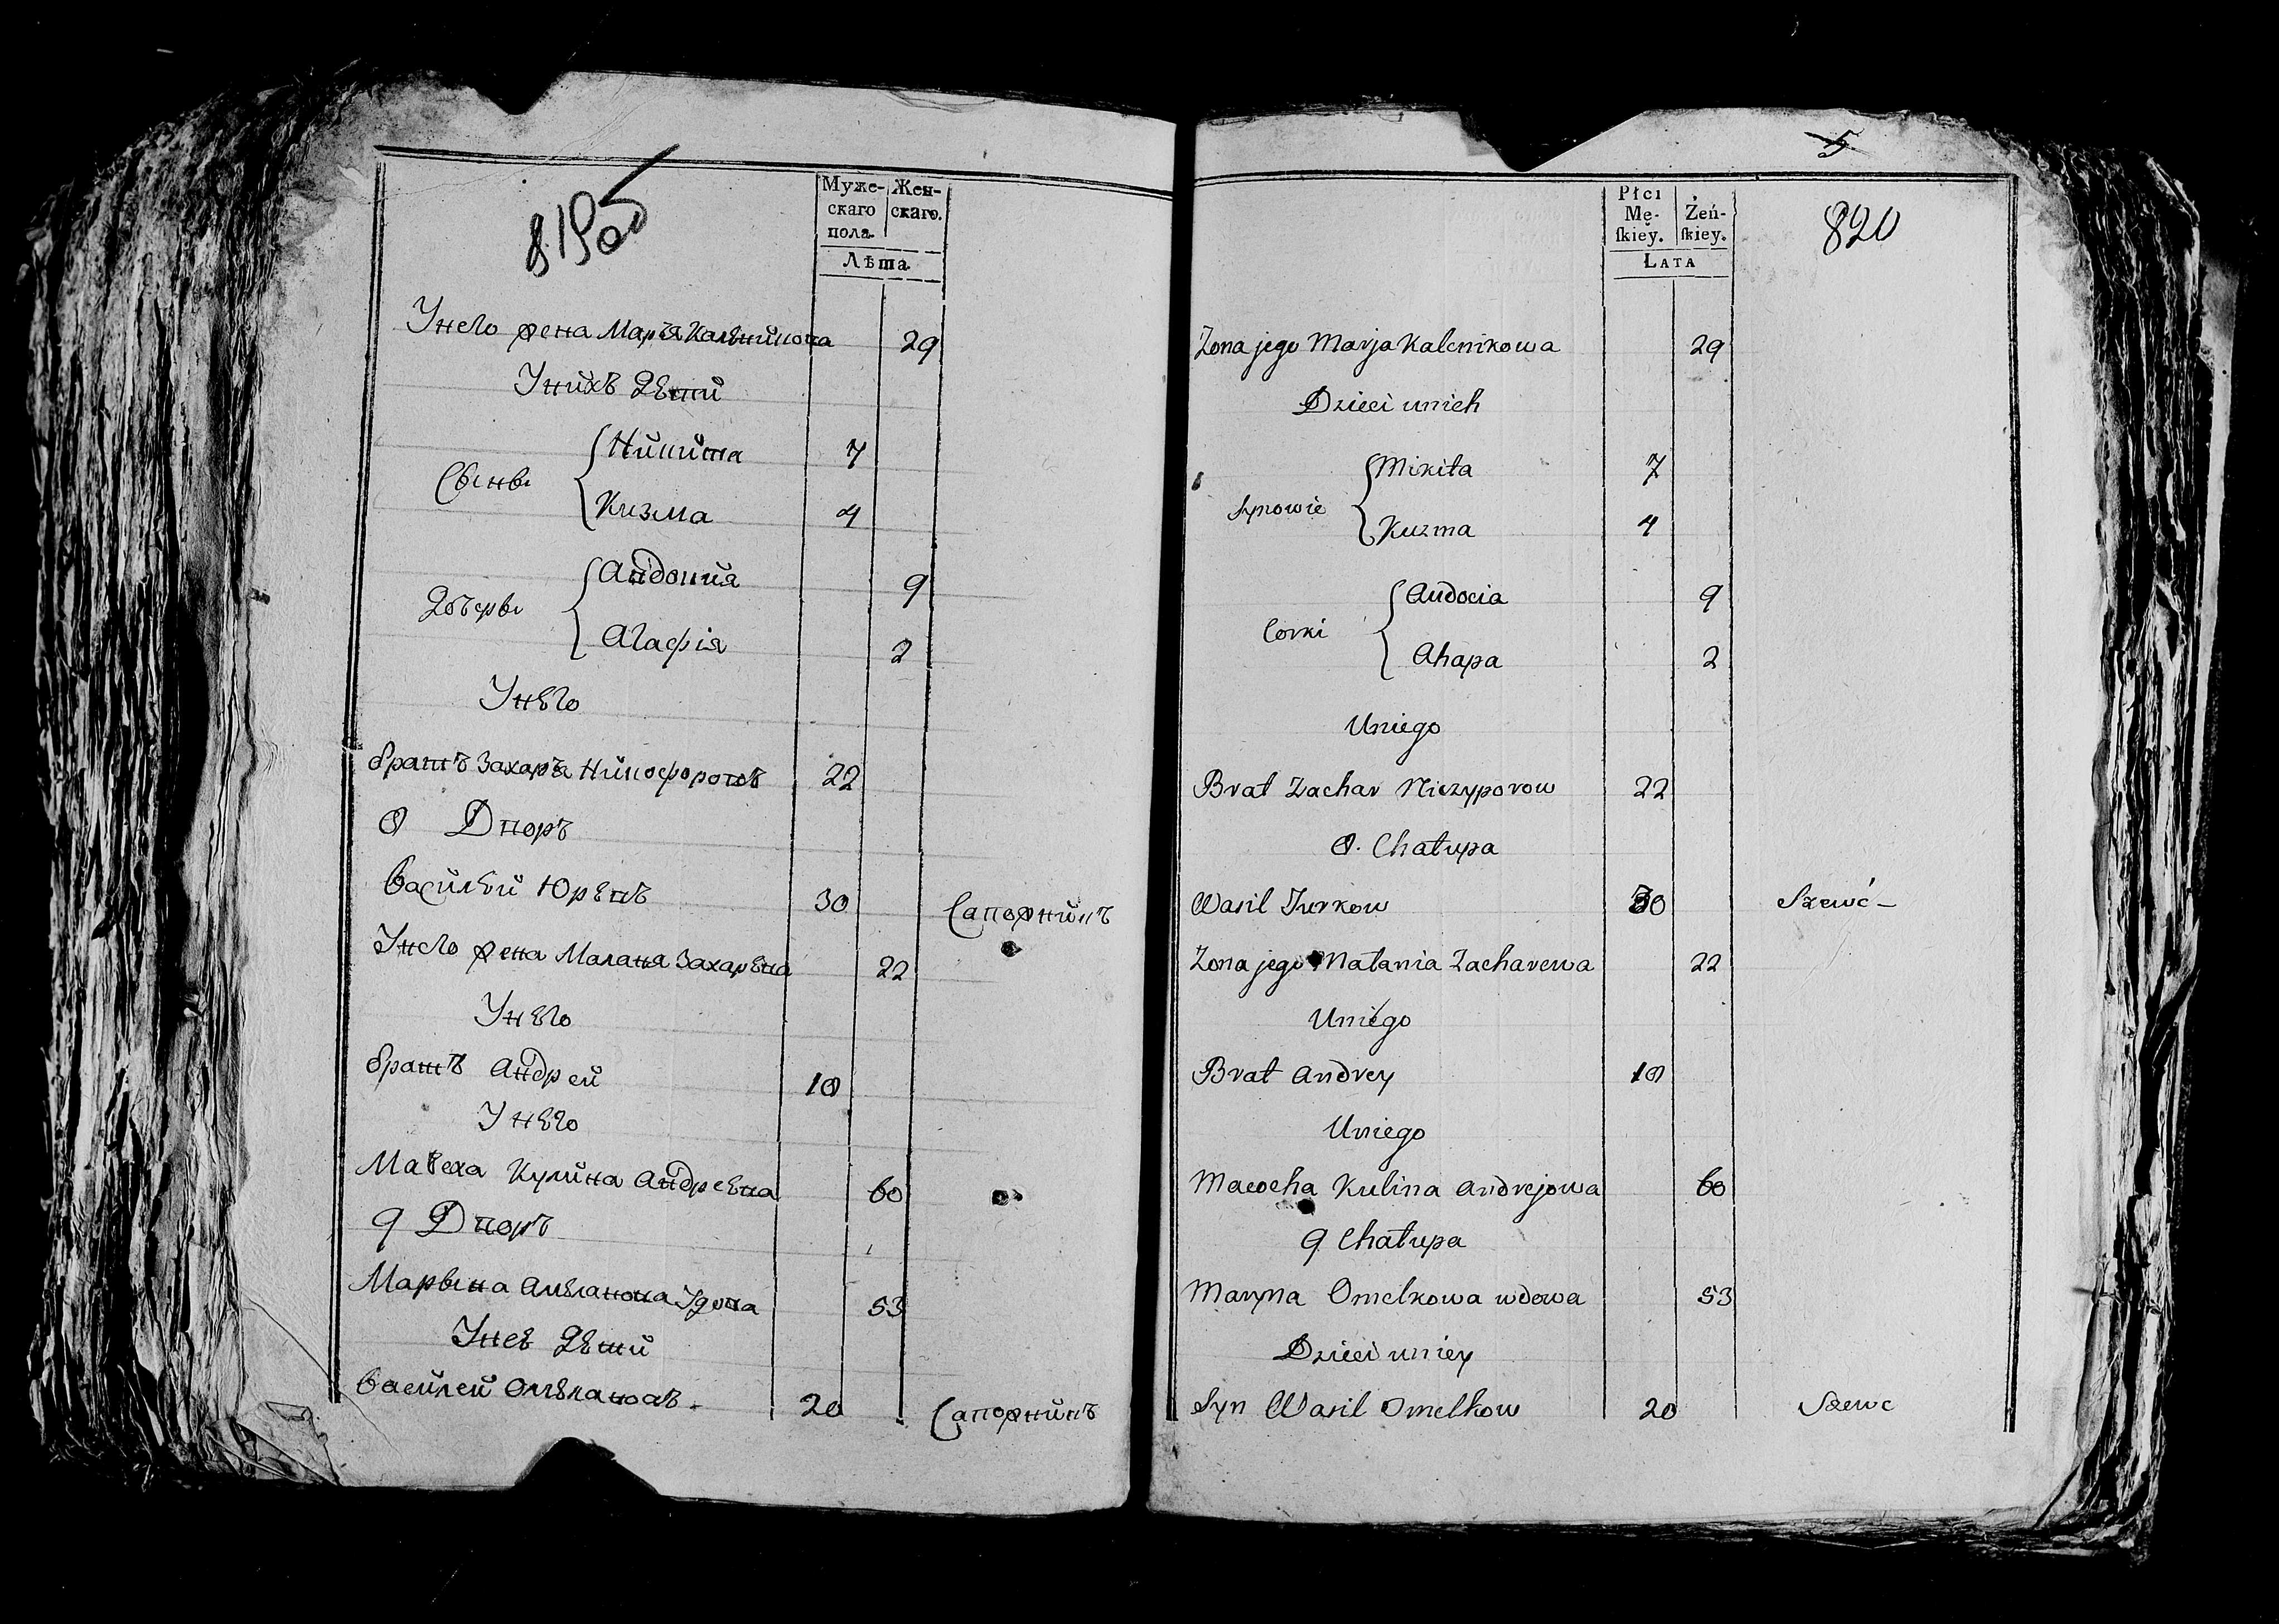 819об
Муже-
скаго
пола.
Жен-
скаго.
Лѣта
Унего жена Марья Калѣникова 29
Унихъ дѣтй
Сыны
Никита 7
Кузма 4
Дочеры
Авдотия 9
Агафія 2
Унѣго
братъ Захаръ Никофоровъ 22
8 Дворъ
Василѣй Юрѣвъ 30 Сапожникъ
Унего жена Маланя Захарѣва 22
Унѣго
братъ Андрей 18
Унѣго
Мачеха Кулина Андреѣва 60
9 Дворъ
Марына Амѣлянова Удова 53
Унеѣ дѣти
Василей Омѣляновъ. 20 Сапожникъ
5
820
Płci
Mę-
skiey.
Żeń-
skiey.
Lata
Zona jego Marja Kalenikowa 29
Dzieci unich
Synowie
Mikita 7
Kuzma 4
Corki
Audocia 9
Ahapa 2
Uniego
Brat Zachar Niczyporow 22
8. Chałupa
Wasil Jurkow 30 Szewc –
Zona jego Małania Zacharewa 22
Uniego
Brat Andrey 18
Uniego
Macocha Kulina Andrejowa 60
9 Chałupa
Maryna Omelkowa wdowa 53
Dzieci uniey
Syn Wasil Omelkow 20 Szewc